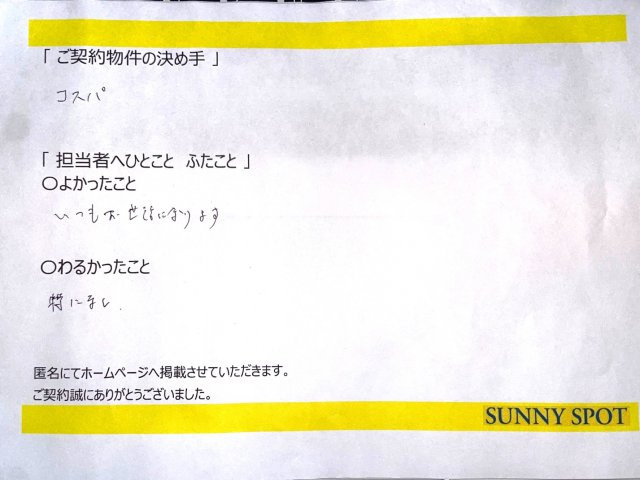 「 ご契約物件の決め手 」
コスパ
「 担当者へひとこと ふたこと 」
○よかったこと
いつもお世話になります
○わるかったこと
特になし.
匿名にてホームページへ掲載させていただきます。
ご契約誠にありがとうございました。
SUNNY SPOT